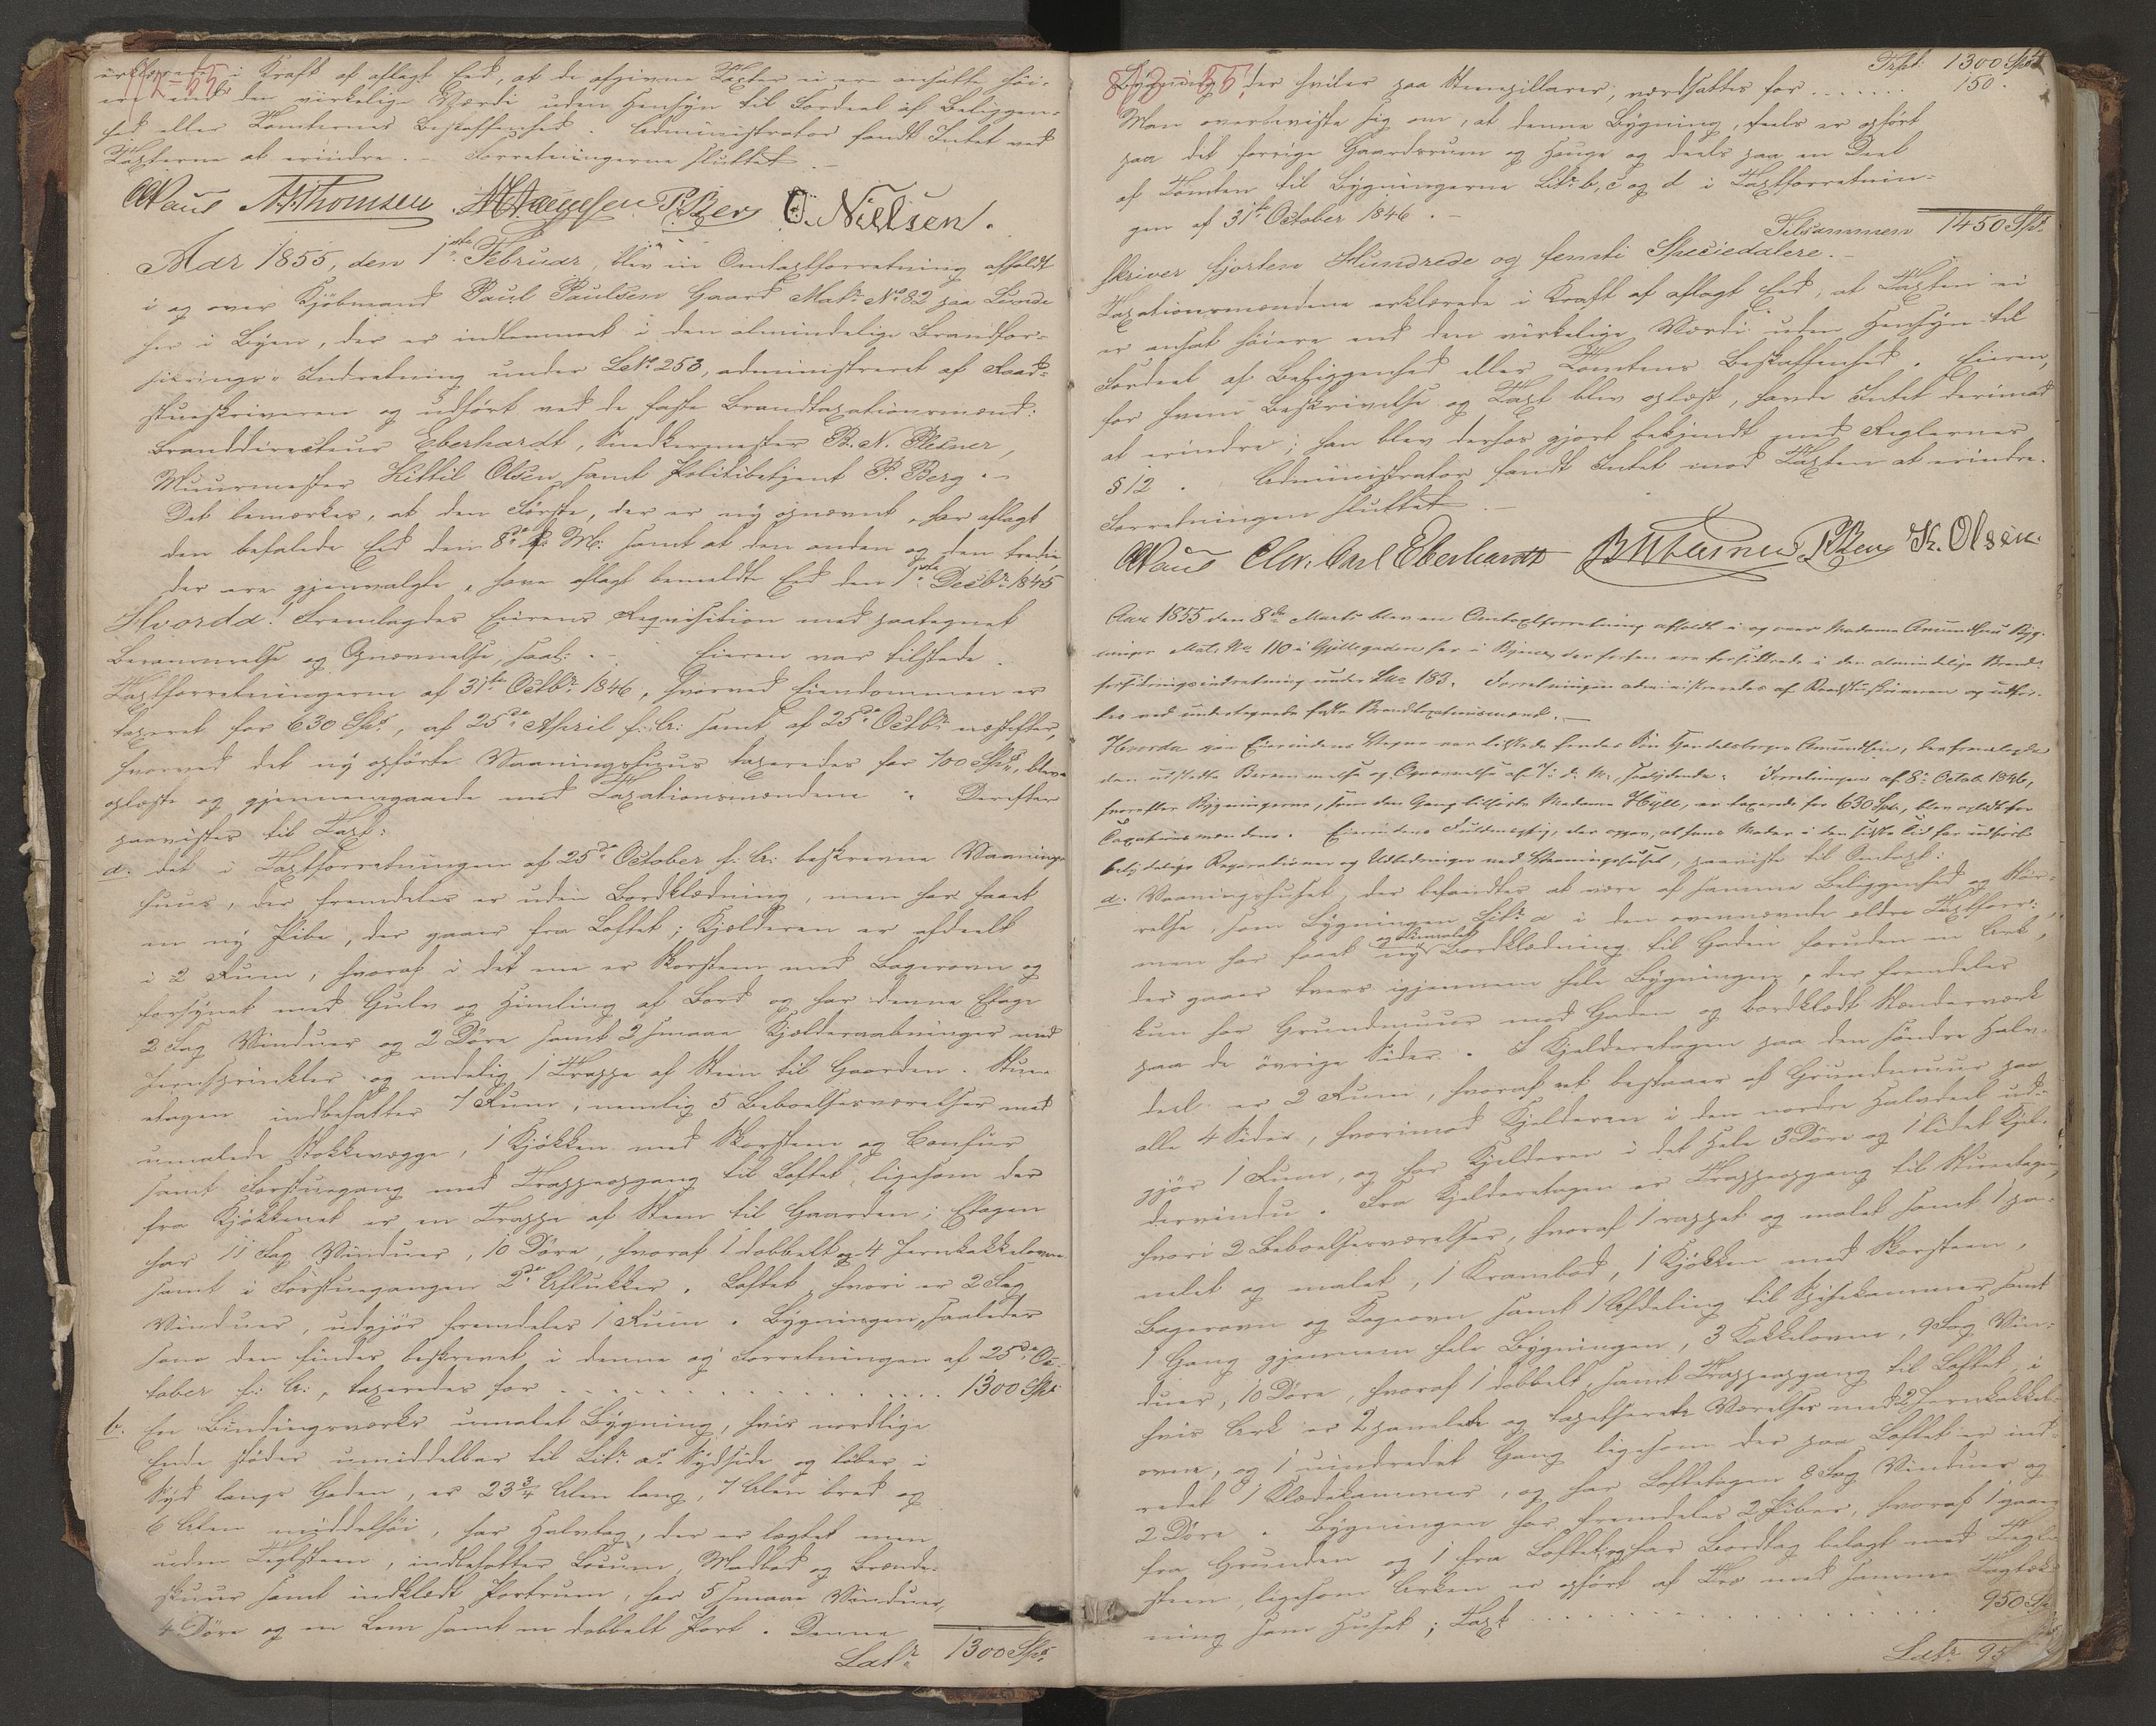 1/2-55.
erklærede i Kraft af aflagt Eed, at de afgivne Taxter ei ere ansatte høi-
ere end den virkelige Værdi uden Hensyn til Fordeel af Beliggen-
hed eller Tomternes Beskaffenhed. Administrator fandt Intet ved
Taxterne at erindre. - Forretningerne sluttet. -
Paus A. Thomsen P. Berg O. Nielsen.
Aar 1855, den 1ste Februar, blev en Omtaxtforretning afholdt
i og over Kjøbmand Paul Paulsen Gaard Matr. No 82 paa Lunde
her i Byen, der er indlemmet i den almindelige Brandfor-
sikrings-Indretning under LNo 253, administreret af Raad-
stueskriveren og udført ved de faste Brandtaxationsmænd:
Branddirecteur Eberhardt, Snedkermester B. N. Plesner,
Muurmester Kittil Olsen samt Politibetjent P. Berg. -
Det bemærkes, at den Første, der er ny opnævnt, har aflagt
den befalede Eed den 8de f. M: samt at den anden og den tredie,
der ere gjenvalgte, have aflagt bemeldte Eed den 1ste Decbr. 1845
Hvorda! Fremlagdes Eierens Requisition med paategnet
Berammelse og Opnævnelse, saal: - Eieren var tilstede.
Taxtforretningerne af 31te Octbr. 1846, hvorved Eiendommen er
taxeret for 630 Spd., af 25de April f: A: samt af 25de Octbr. næstefter,
hvorved det ny opførte Vaaningshuus taxeredes for 700 Spd., bleve
oplæste og gjennemgaaede med Taxationsmændene. Derefter
paavistes til Taxt:
a. det i Taxtforretningen af 25de October f: A: beskrevne Vaanings-
huus, der fremdeles er uden Bordklædning, men har faaet
en ny Pibe, der gaaer fra Loftet; Kjælderen er afdeelt
i 2 Rum, hvoraf i det ene er Skorsteen med Bagerovn og
forsynet med Gulv og Himling af Bord og har denne Etage
2 Fag Vinduer og 2 Døre samt 2 smaae Kjælderaabninger med
Jernsprinkler og endelig 1 Trappe af Steen til Gaarden. Stue-
etagen indbefatter 7 Rum, nemlig 5 Beboelsesværelser med
umalede Stokkevægge, 1 Kjøkken med Skorsteen og Comfur
samt Forstuegang med Trappeopgang til Loftet, ligesom der
fra Kjøkkenet er en Trappe af Steen til Gaarden; Etagen
har 11 Fag Vinduer, 10 Døre, hvoraf 1 dobbelt og 4 Jernkakkelovne
samt i Forstuegangen 2de Aflukker. Loftet, hvori er 2 Fag
Vinduer, udgjør fremdeles 1 Rum. Bygningen, saaledes
som den findes beskrevet i denne og Forretningen af 25de Oc-
tober f: A:, taxeredes for . . . . . . 1300 Spd.
b. En Bindingsværks umalet Bygning, hvis nordlige
Ende støder umiddelbar til Litr. a's Sydside og løber i
Syd langs Gaden, er 23 3/4 Alen lang, 7 Alen bred og
6 Alen middelhøi, har Halvtag, der er lægtet men
uden Teglsteen, indbefatter Locum, Madbod og Brænde-
skuur samt indklædt Portrum, har 5 smaae Vinduer,
4 Døre og en Lem samt en dobbelt Port. Denne
Latr. 1300 Spd.
8/3-55.
Trspt: 1300 Spd
Bygning, der hviler paa Steenpillarer, værdsattes for . . . . 150.
Man overbeviste sig om, at denne Bygning, deels er opført
paa det forrige Gaardsrum og Hauge og deels paa en Deel
af Tomten til Bygningerne Litr. b, c og d i Taxtforretnin-
gen af 31te October 1846. -
Tilsammen 1450 Spd.
skriver fjorten Hundrede og femti Speciedalere. -
Taxationsmændene erklærede i Kraft af aflagt Eed, at Taxten ei
er ansat høiere end den virkelige Værdi uden Hensyn til
Fordeel af Beliggenhed eller Tomtens Beskaffenhed. Eieren,
for hvem Beskrivelse og Taxt blev oplæst, havde Intet derimod
at erindre; han blev derhos gjort bekjendt med Reglernes
§ 12. Administrator fandt Intet mod Taxten at erindre.
Forretningen sluttet. -
Paus Chr. Carl Eberhardt B N Plesner P. Berg K. Olsen.
Aar 1855 den 8de Marts blev en Omtaxtforretning afholdt i og over Madame Amundsens Byg-
ninger Matr. No. 110 i her i Byen, der forhen ere forsikkrede i den almindelige Brand-
forsikringsindretning under Lno 183. Forretningen administreredes af Raadstuskriveren og udfør-
tes ved undertegnede faste Brandtaxationsmænd. -
Hvorda paa Eierindens Vegne var tilstede hendes Søn Handelsborger Amundsen, der fremlagde
den udstedte Berammelse og Opnævnelse af 7: d. M., saalydende: Forretningen af 8: Octob. 1846,
hvorefter Bygningerne, som den Gang tilhørte Madame Hylle, er taxerede for 630 Spd., blev oplæst for
Taxationsmændene. Eierindens Fuldmægtig, der opgav, at hans Moder i den sidste Tid har udført
betydelige Reparationer og Udbedringer ved Vaaningshuset, paaviste til Omtaxt:
a. Vaaningshuset, der befandtes at være af samme Beliggenhed og Stør-
relse, som Bygningen Litr. a i den ovennævnte ældre Taxtforr:,
men har faaet ny og Bordklædning til Gaden foruden en Ark,
der gaaer tvers igjennem hele Bygningen, der fremdeles
kun har Grundmuur mod Gaden og bordklædt Stænderværk
paa de øvrige Sider. I Kjelderetagen paa den søndre Halv-
deel er 2 Rum, hvoraf et bestaaer af Grundmuur paa
alle 4 Sider, hvorimod Kjelderen i den nordre Halvdeel ud-
gjør 1 Rum, og har Kjelderen i det Hele 3 Døre og 1 lidet Kjel-
dervindu. Fra Kjelderetagen er Trappeopgang til Stueetagen,
hvori 2 Beboelsesværelser, hvoraf 1 rappet og malet samt 1 pa-
nelet og malet, 1 Krambod, 1 Kjøkken med Skorsteen,
Bagerovn og Kogeovn samt 1 Afdeling til Spisekammer samt
1 Gang gjennem hele Bygningen, 3 Kakkelovne, 9 Fag Vin-
duer, 10 Døre, hvoraf 1 dobbelt, samt Trappeopgang til Loftet, i
hvis Ark er 2 panelede og tapetserede Værelser med 2 Jernkakkel-
ovne, og 1 uindredet Gang ligesom der paa Loftet er ind-
redet 1 Klædekammer, og har Loftetagen 8 Fag Vinduer og
2 Døre. Bygningen har fremdeles 2 Piber, hvoraf 1 gaaer
fra Grunden og 1 fra Loftet, og har Bordtag belagt med Tegl-
steen, ligesom Arken er opført af Træ med samme Tagtæk-
ning som Huset; Taxt . . . . . . 950 Sp
Latr. 95